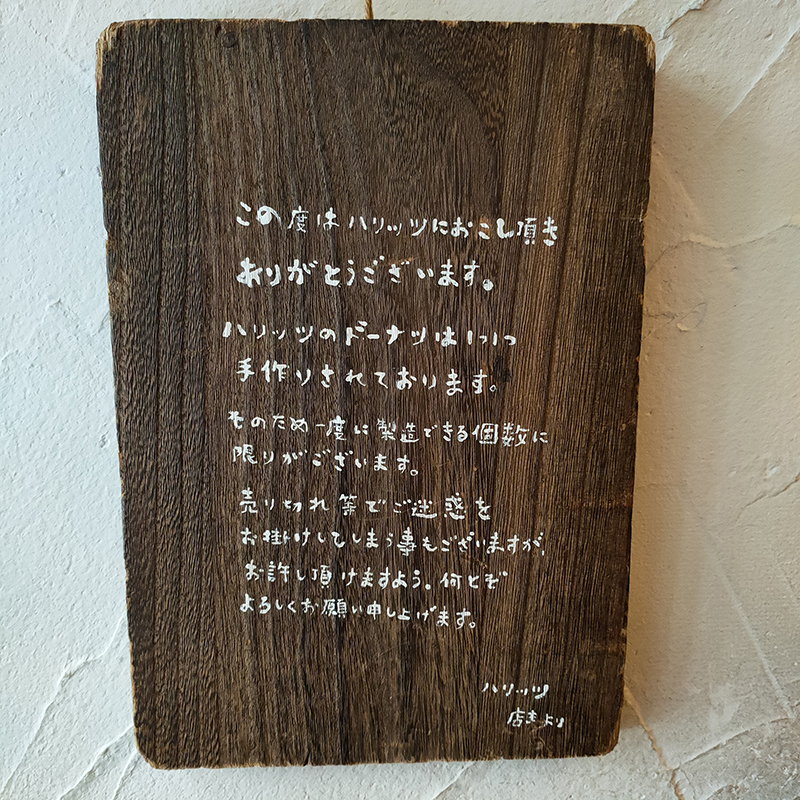 この度はハリッツにおこし頂き
ありがとうございます。
ハリッツのドーナツは1つ1つ
手作りされております。
そのため一度に製造できる個数に
限りがございます。
売り切れ等でご迷惑を
お掛けしてしまう事もございますが、
お許し頂けますよう。何とぞ
よろしくお願い申し上げます。
ハリッツ
店主より